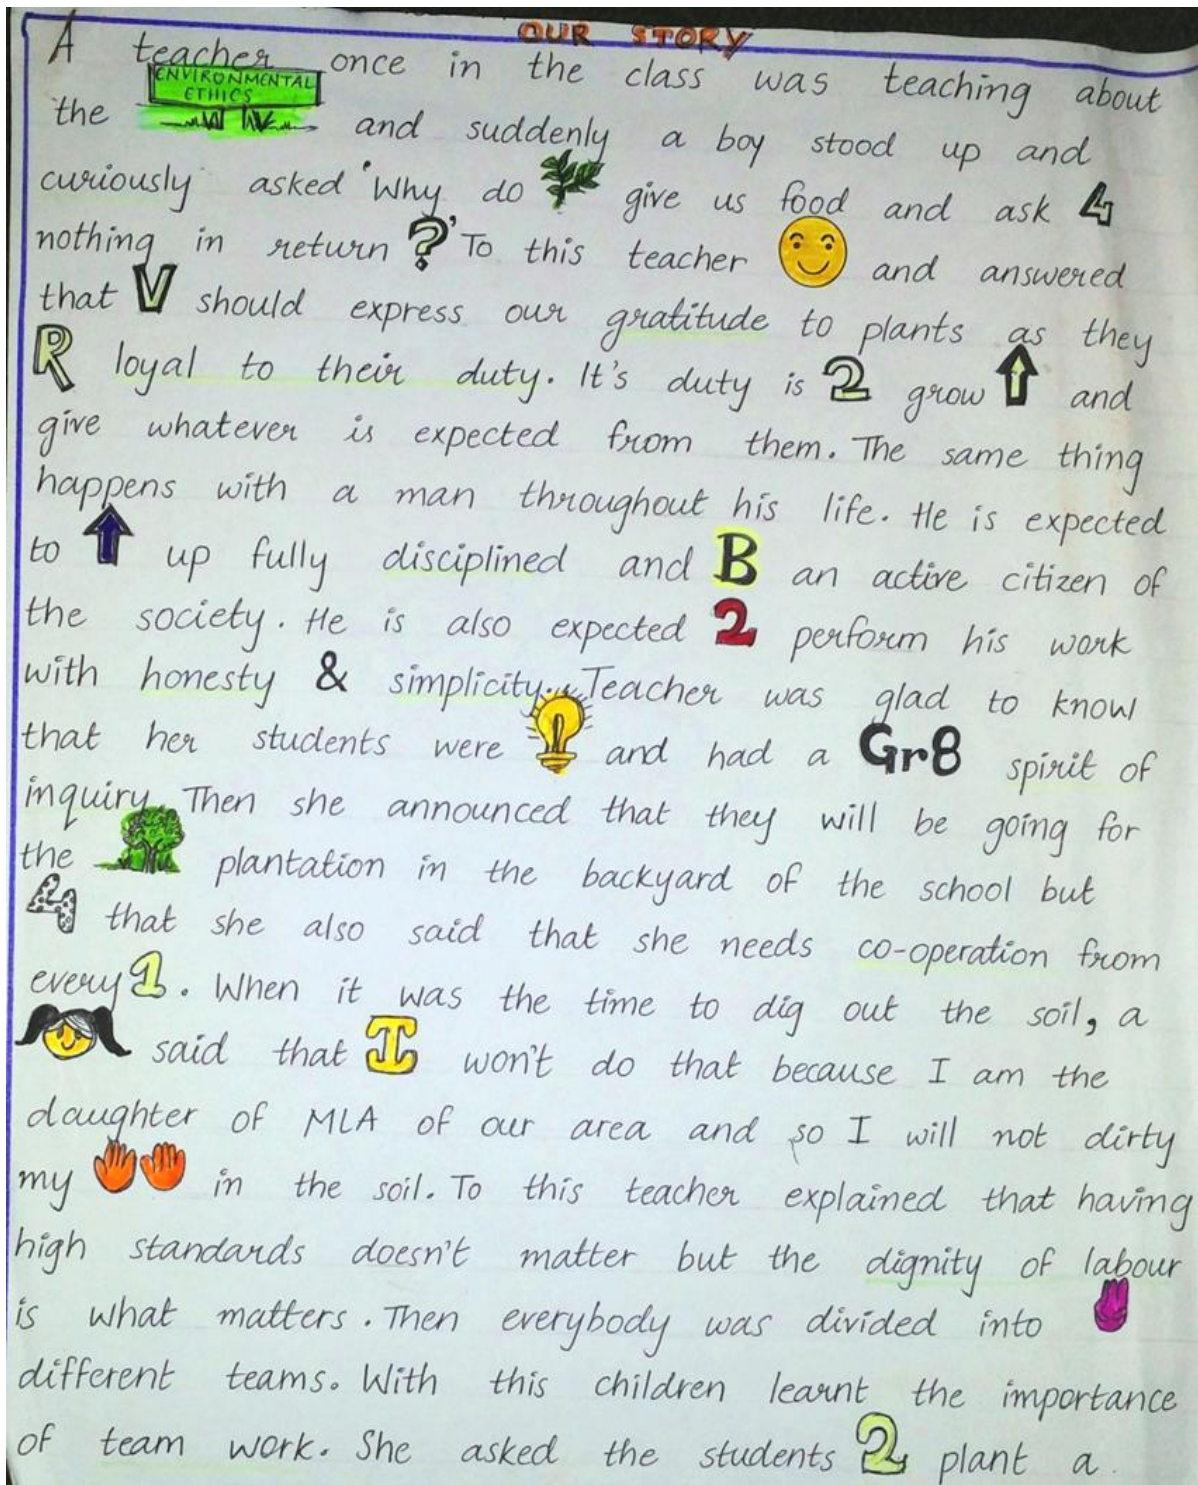 OUR STORY
A teacher once in the class was teaching about
ENVIRONMENTAL
ETHICS
the and suddenly a boy stood up and
curiously asked 'Why do give us food and ask 4
nothing in return ?' To this teacher and answered
that V should express our gratitude to plants as they
R loyal to their duty. It's duty is 2 grow and
give whatever is expected from them. The same thing
happens with a man throughout his life. He is expected
to up fully disciplined and B an active citizen of
the society. He is also expected 2 perform his work
with honesty & simplicity. Teacher was glad to know
that her students were and had a Gr8 spirit of
inquiry. Then she announced that they will be going for
the plantation in the backyard of the school but
4 that she also said that she needs co-operation from
every1. When it was the time to dig out the soil, a
said that I won't do that because I am the
daughter of MLA of our area and so I will not dirty
my in the soil. To this teacher explained that having
high standards doesn't matter but the dignity of labour
is what matters. Then everybody was divided into
different teams. With this children learnt the importance
of team work. She asked the students 2 plant a